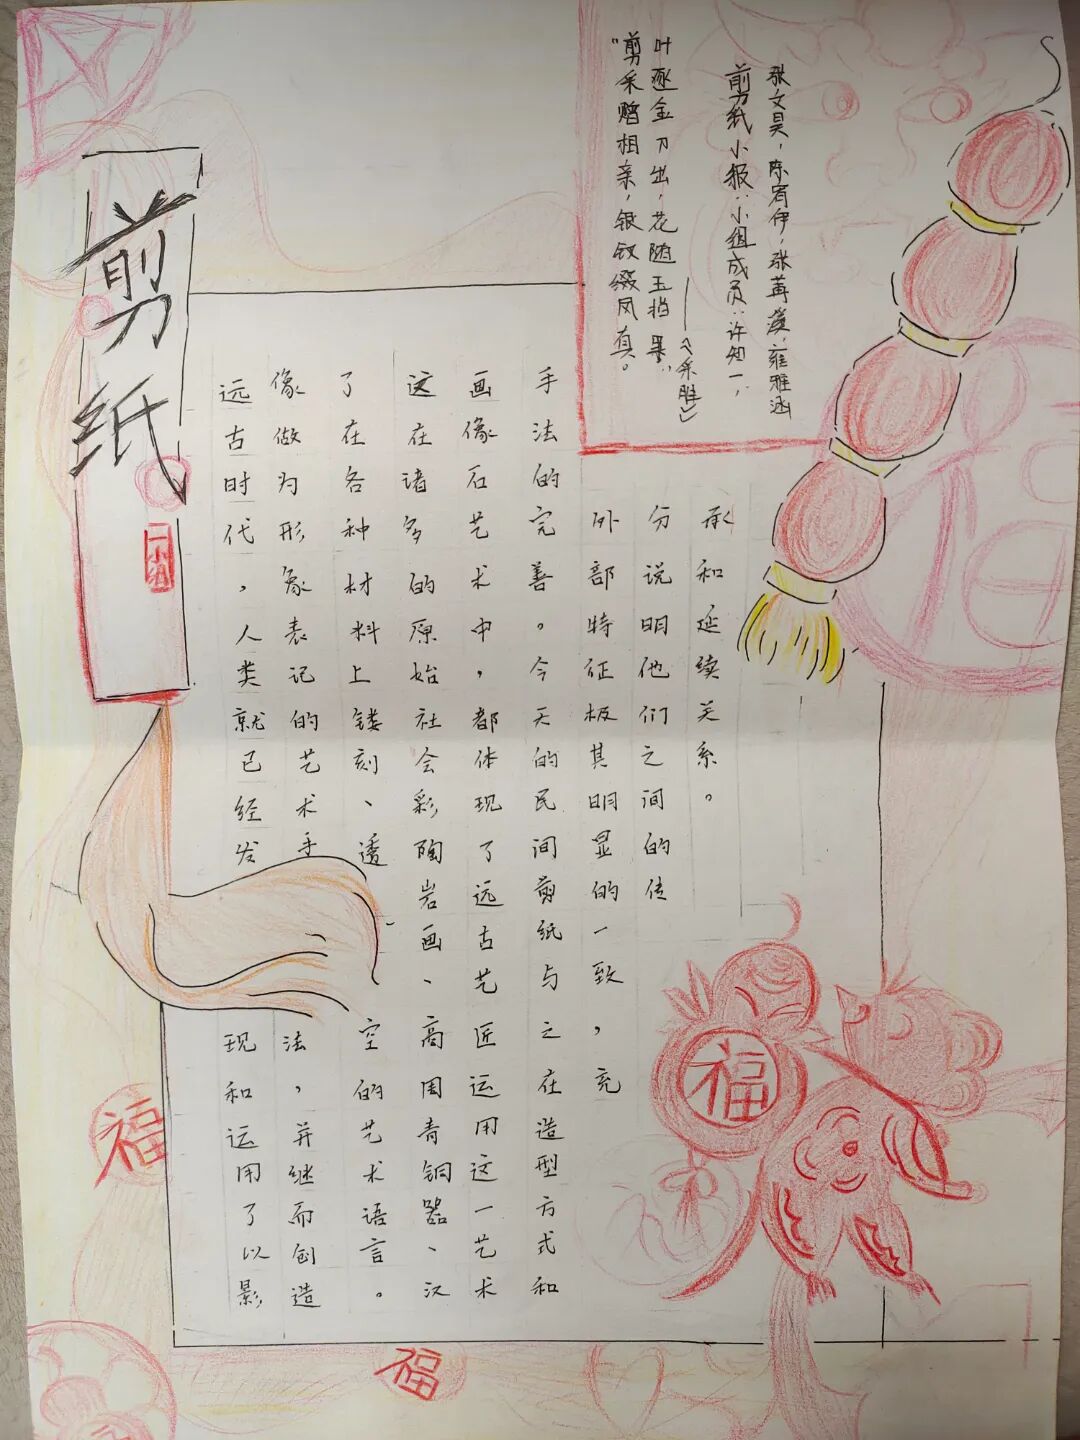 剪纸
"剪采赠相亲，银钗缀凤真。
叶逐金刀出，花随玉指
——《采胜》
剪纸小报：小组成员：许知一，
张文昊，陈宥伊，张苒，雍雅涵
远古时代，人类就已经发现和运用了以影
像做为形象表记的艺术手法，并继而创造
了在各种材料上镂刻、透空的艺术语言。
这在诸多的原始社会彩陶岩画、高周青铜器、汉
画像石艺术中，都体现了远古艺匠运用这一艺术
手法的完善。今天的民间剪纸与之在造型方式和
外部特征极其明显的一致，充
分说明他们之间的传
承和延续关系。
福
福
福